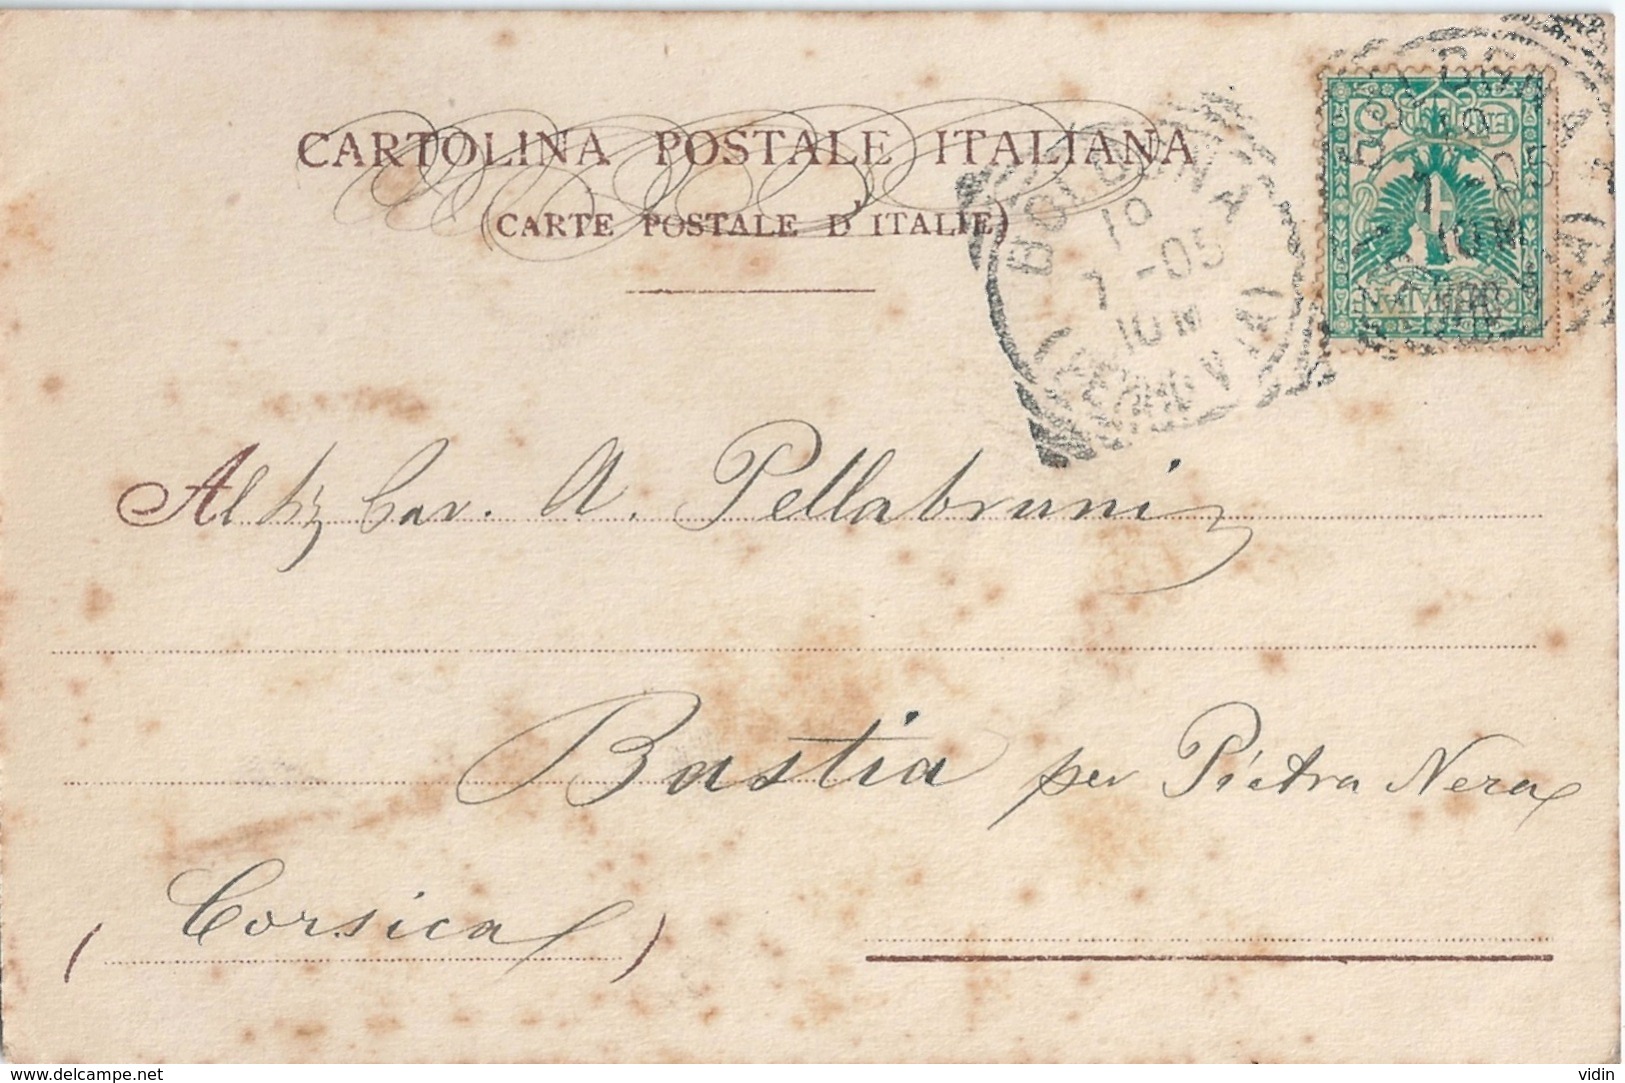 CARTOLINA POSTALE ITALIANA
(CARTE POSTALE D'ITALIE)
BOLOGNA
18
1-05
10 M
(FERROVIA)
Al Sig Cav. A. Pellabruni
Bastia per Pietra Nera
(Corsica)
www.delcampe.net
vidin